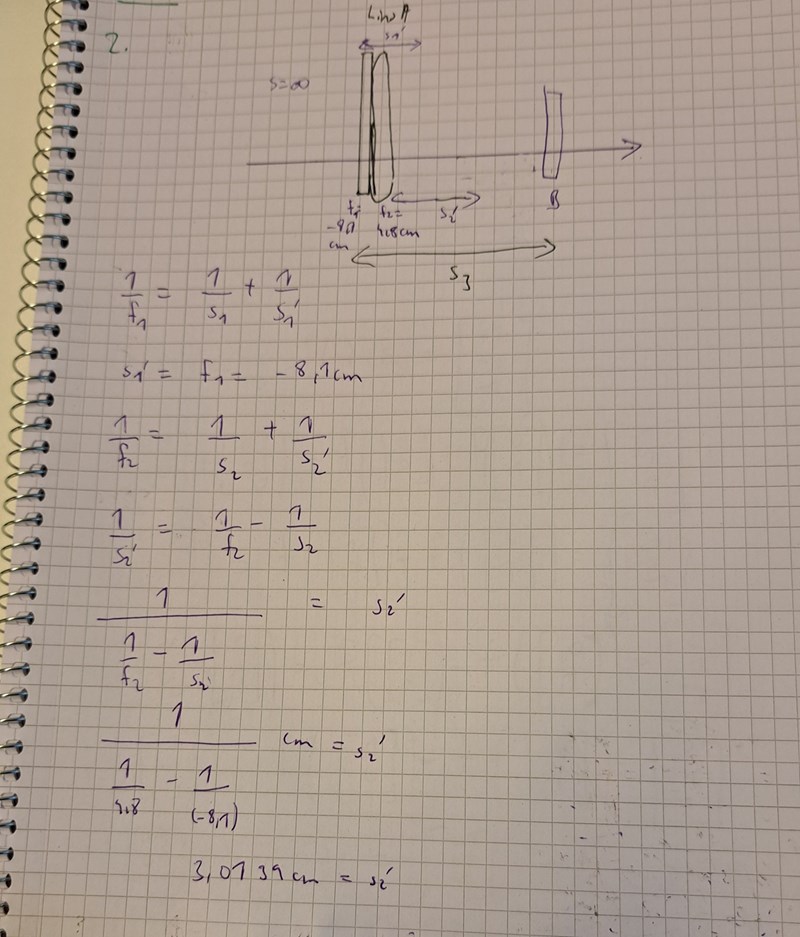 2.
Lins A
s1'
s=∞
f1= -8,1 cm
f2= 4,8 cm
s2'
B
s3
1/f1 = 1/s1 + 1/s1'
s1' = f1 = -8,1 cm
1/f2 = 1/s2 + 1/s2'
1/s2' = 1/f2 - 1/s2
1/(1/f2 - 1/s2) = s2'
1/(1/4,8 - 1/(-8,1)) cm = s2'
3,0139 cm = s2'